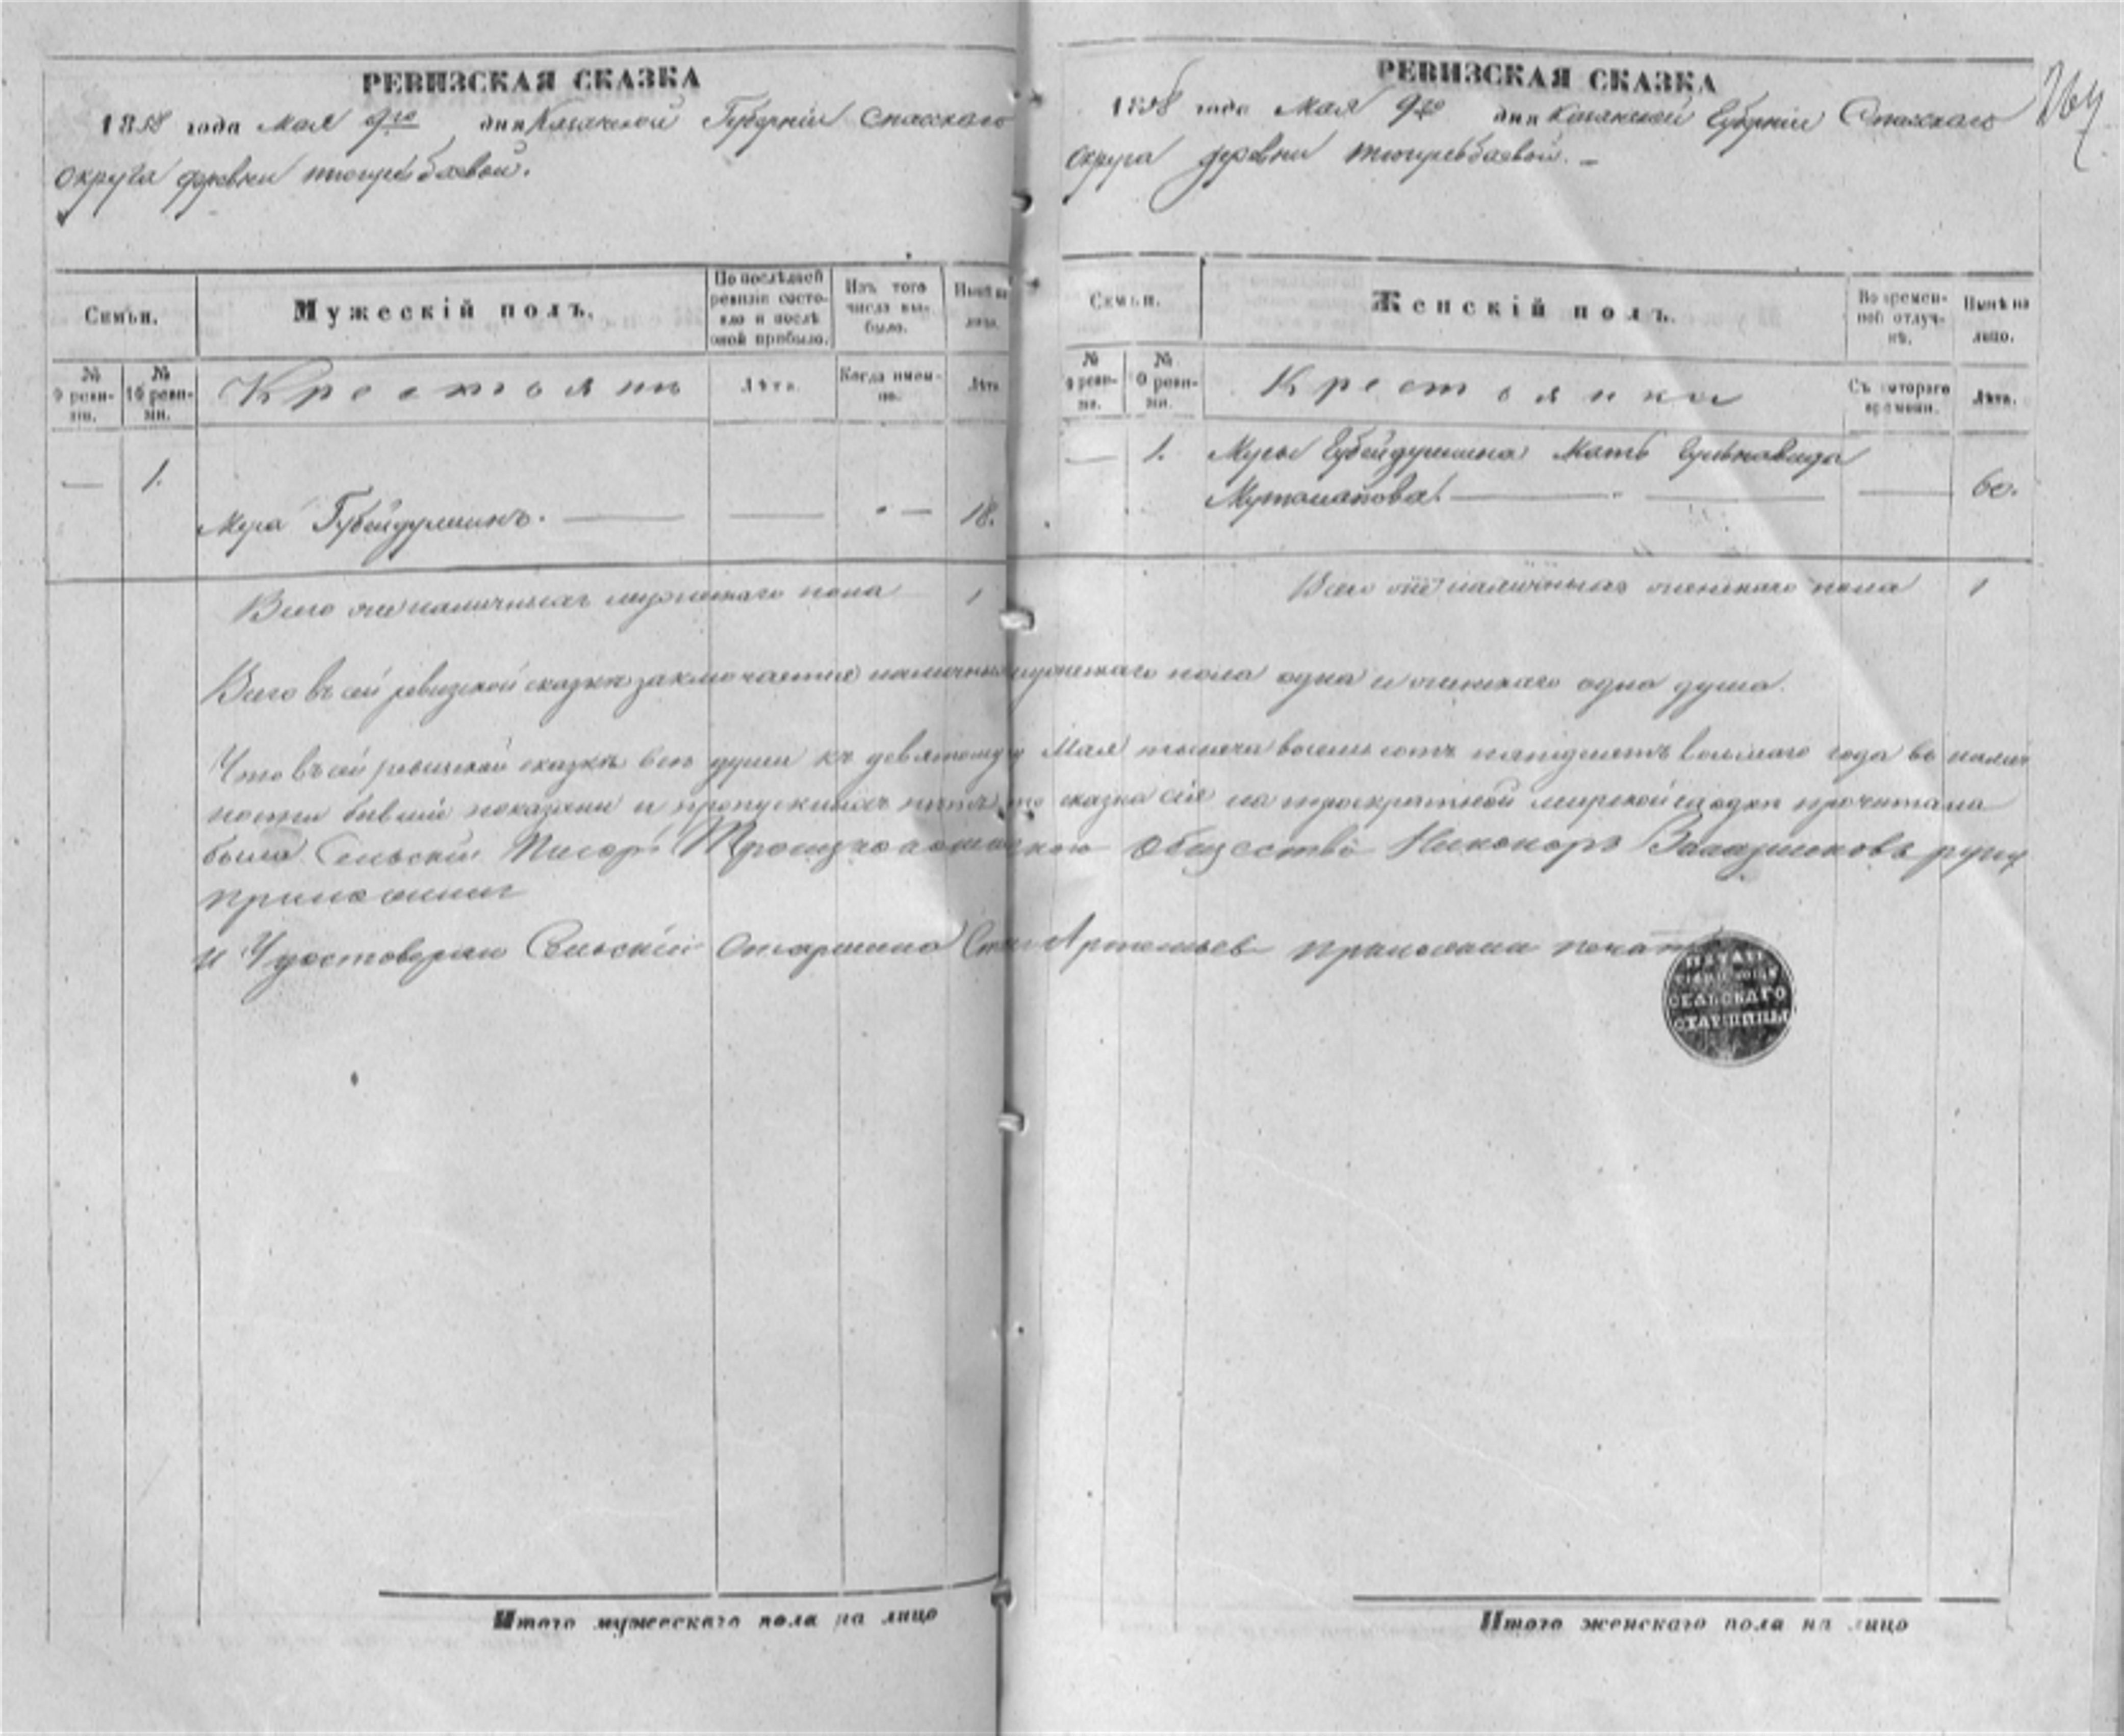 РЕВИЗСКАЯ СКАЗКА
1858 года мая 9го дня Казанской Губернiи Спасскаго
округа деревни тюгульбаевой.
Семьи.
Мужескiй полъ.
По послѣдней ревизiи состояло и послѣ оной прибыло.
Изъ того числа выбыло.
Нынѣ на лицо.
№ 9 ревизiи.
№ 10 ревизiи.
Крестьянъ
Лѣта.
Когда именно.
Лѣта
— 1.
Муса Губейдуллинъ. 18.
Всего же наличныхъ мужескаго пола 1
РЕВИЗСКАЯ СКАЗКА
1858 года Мая 9го дня Казанской Губернiи Спасскаго
округа деревни тюгульбаевой. –
264
Семьи.
Женскiй полъ.
Во временной отлучкѣ.
Нынѣ на лицо.
№ 9 ревизiи.
№ 0 ревизiи.
Крестьянка
Съ котораго времени.
Лѣта.
— 1. Мусы Губейдуллина Мать
60.
Всего же наличныхъ женскаго пола 1
Всего въ сей ревизской сказкѣ заключается наличныхъ мужескаго пола одна и женскаго одна душа.
Что въ сей ревизской сказкѣ всѣ души къ девятому Мая тысяча восемь сотъ пятьдесятъ восьмаго года въ налич
ности бывшiе показаны и пропускныхъ нѣтъ, то сказка сiя на троекратной мирской сходкѣ прочитана
была Сельскiй Писарь общество Никоноръ руку
приложилъ
и Удостоверяю Сельскiй Старшина Артемьев приложили печать
ПЕЧАТЬ
СЕЛЬСКАГО
СТАРШИНЫ
Итого мужескаго пола на лицо
Итого женскаго пола на лицо